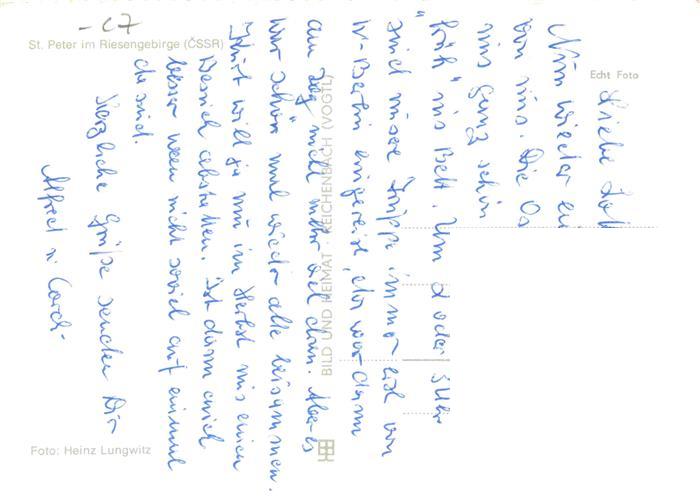 - C7
St. Peter im Riesengebirge (ČSSR)
Echt Foto
BILD UND HEIMAT REICHENBACH (VOGTL)
Foto: Heinz Lungwitz
Liebe
Nun wieder ein
von uns. Die
uns ganz schön
"früh" ins Bett. Um 2 oder 3 Uhr
sind unsere immer erst von
W-Berlin eingereist, da war dann
am Tag nicht mehr viel dran. Aber es
war schön mal wieder alle beisammen.
will ja nun im Herbst uns einen
Besuch abstatten. Ist dann auch
besser wenn nicht soviel auf einmal
da sind.
Herzliche Grüße senden Dir
Alfred u.